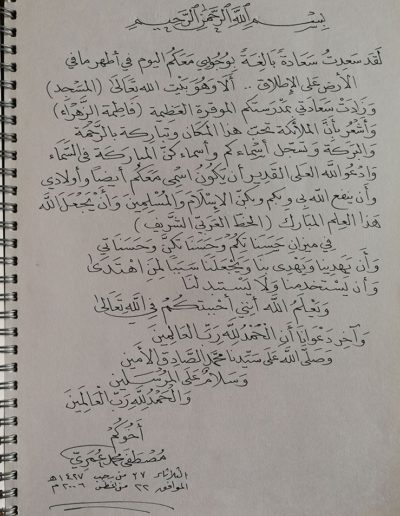 بِسْمِ اللَّهِ الرَّحْمَنِ الرَّحِيمِ
لَقَد سَعِدتُ سَعَادةً بالغَةً بوُجُودي مَعَكُم اليوم في أطهَر ما في
الأرضِ عَلَى الإطلاق .. ألا وهُوَ بَيْت اللهِ تعَالَى (المَسْجِد)
وَزَادَت سَعَادَتي بمَدرسَتِكم الموقرة العَظيمة (فاطِمَة الزَّهْرَاء)
وَأشْعُر بأنَّ المَلائِكة تحُف هذا المكَان وتباركه بالرَّحْمَة
والبَرَكَة وتسَجل أسْمَاءكم وأسماءكنَّ المباركَة في السَّمَاء
وَادْعُو اللهَ العَلي القَدير أن يكُون اسْمي مَعَكُم أيضًا وأولادي
وأن ينفَع الله بي وبكم وبكنَّ الإسْلامَ وَالمُسْلِمين وَأنْ يَجْعَل اللهُ
هَذَا العِلم المبَارك (الخط العَرَبي الشَّريف)
في ميزانِ حَسَنَاتِكُم وَحَسَنَاتكُنَّ وَحَسَناتي
وَأن يَهدِينا وَيَهْدِي بنا وَيَجْعَلنَا سَبَبًا لِمَن اهْتَدَى
وَأن يَسْتَخدِمنا وَلَا يَسْتَبدِلنا
وَيَعْلَمُ اللهُ أنني أحْبَبتكُم في اللهِ تَعَالَى
وَآخِر دَعْوَانا أَن الحَمْدُ للهِ رَبِّ العَالَمِينَ
وَصَلَّى اللهُ عَلَى سَيِّدنا مُحَمَّد الصَّادِق الأَمِين
وَسَلَامٌ عَلَى المُرْسَلِين
وَالْحَمْدُ للهِ رَبِّ العَالَمِينَ
أخُوكُم
مُصْطَفى مُحمَّد عُمَري
الثلاثاء ٢٧ من رجب ١٤٢٧هـ
الموافق ٢٢ من ٢٠٠٦م